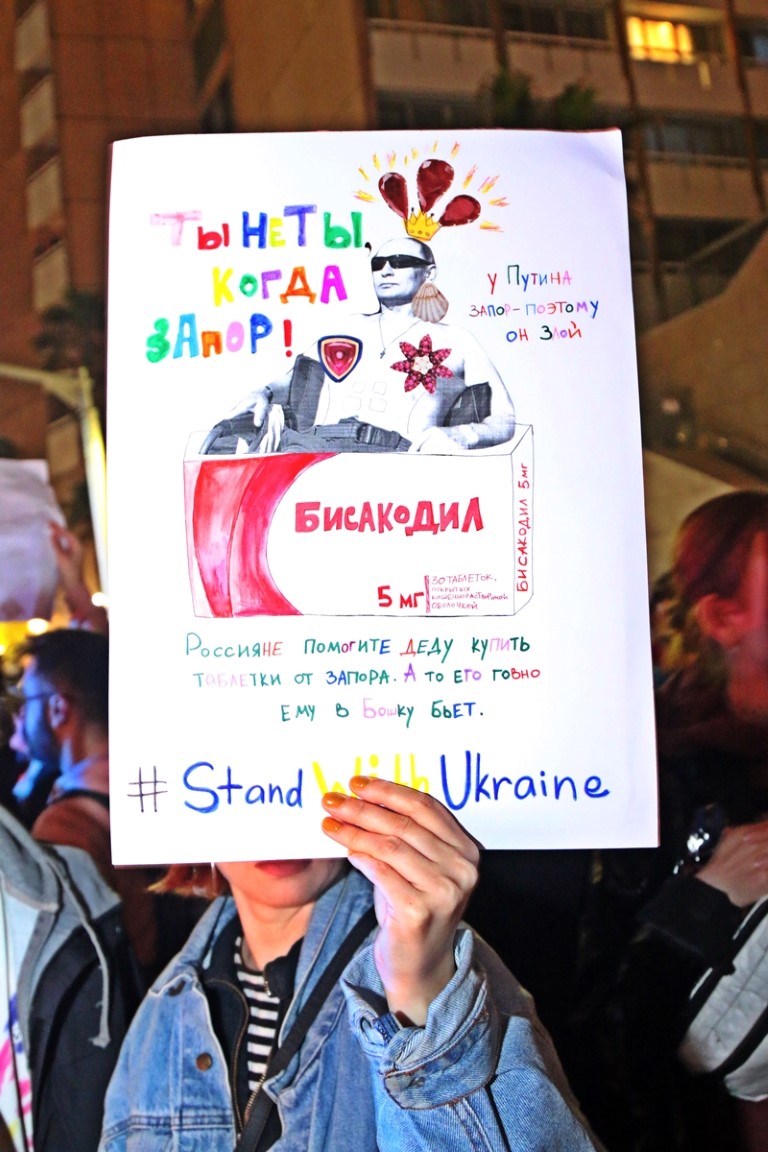 Ты не Ты,
когда
запор!
у Путина
запор-поэтому
он злой
БИСАКОДИЛ
5 мг
30 таблеток,
покрытых
кишечнорастворимой
оболочкой
БИСАКОДИЛ 5 мг
Россияне помогите деду купить
таблетки от запора. А то его говно
ему в Бошку бьет.
# Stand With Ukraine